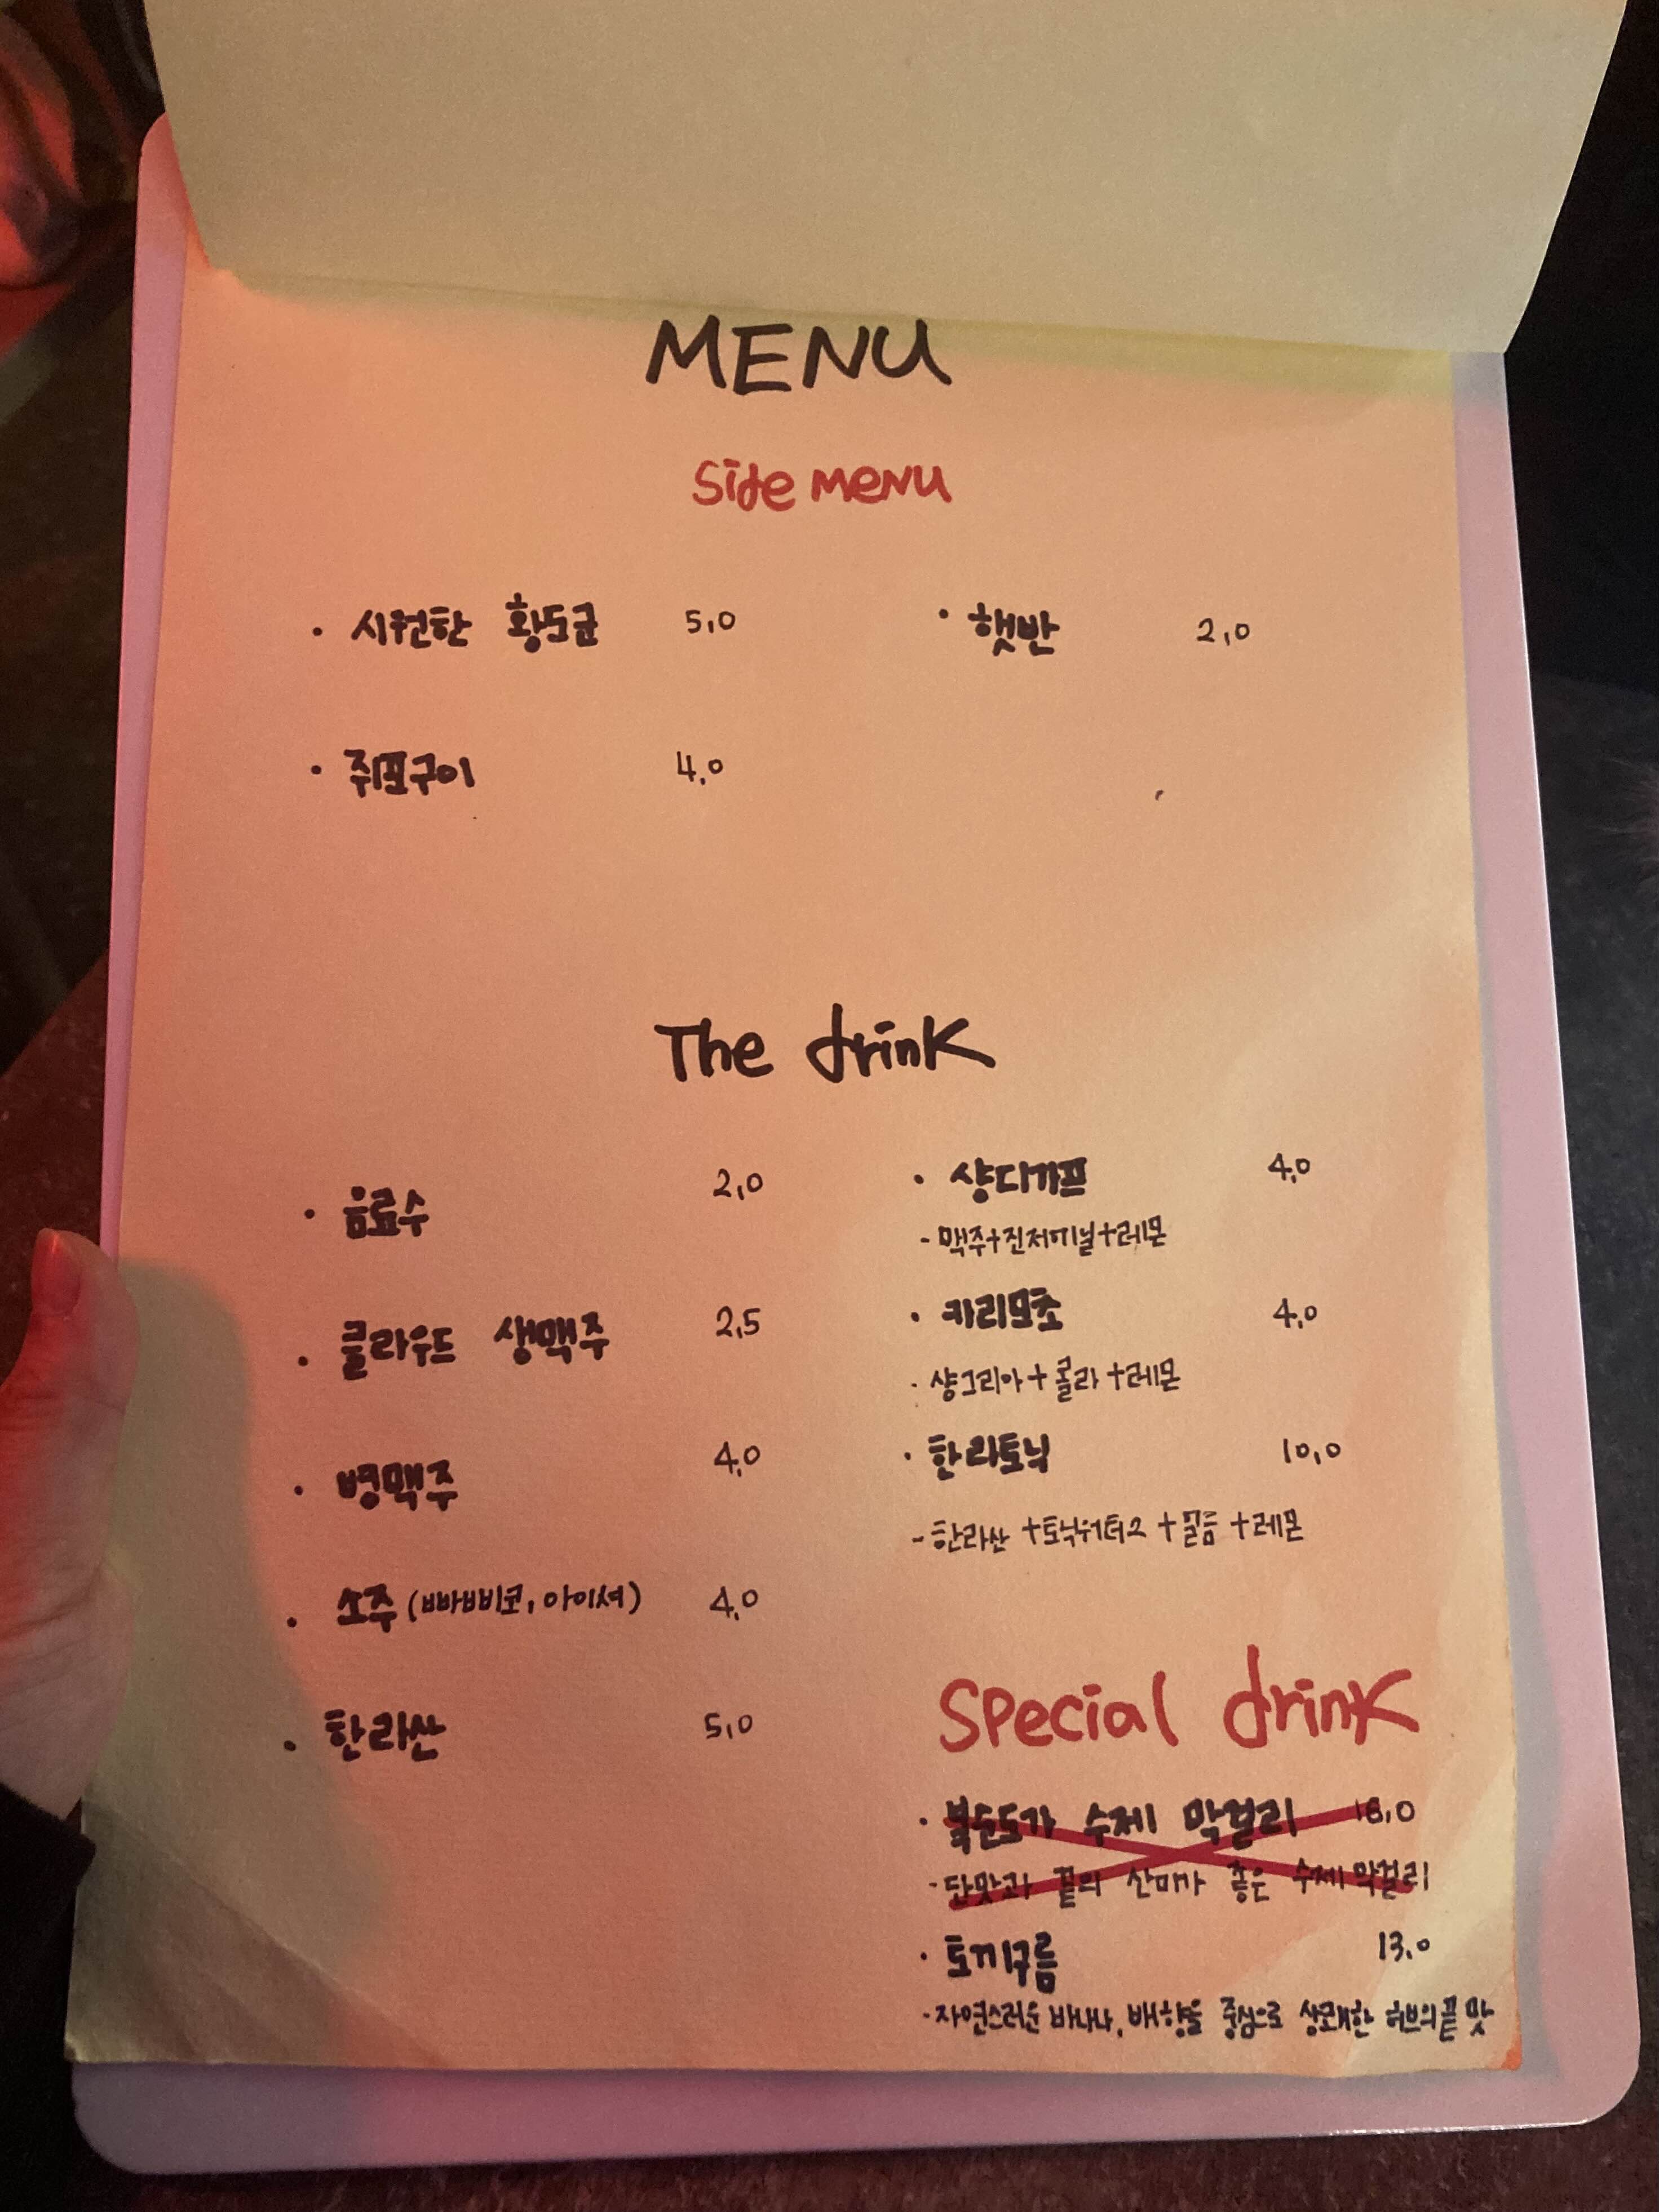 MENU
Side MENU
· 시원한 황도군 5,0
· 햇반 2,0
· 쥐포구이 4,0
The drink
· 음료수 2,0
· 클라우드 생맥주 2,5
· 병맥주 4,0
· 소주 (빠삐코, 아이셔) 4,0
· 한라산 5,0
· 샹디가프 4,0
- 맥주+진저에일+레몬
· 카리모초 4,0
- 샹그리아+콜라+레몬
· 한라토닉 10,0
- 한라산+토닉워터2+얼음+레몬
Special drink
도가 수제 막걸리 16,0
- 단맛과 끝의 산미가 좋은 수제막걸리
· 토끼구름 13,0
- 자연스러운 바나나, 배향을 중심으로 상쾌한 허브의 끝 맛